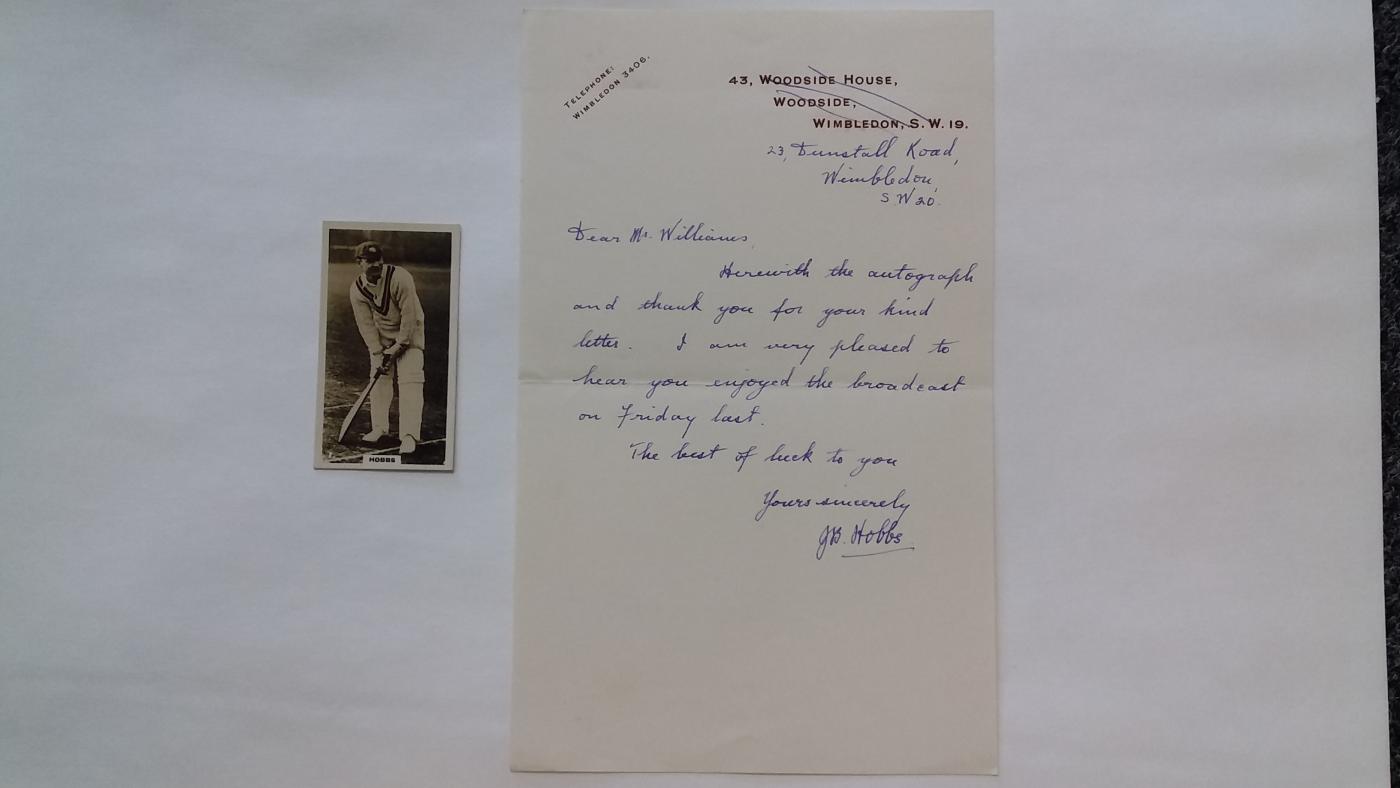 TELEPHONE:
WIMBLEDON 3406.
43, WOODSIDE HOUSE,
WOODSIDE,
WIMBLEDON, S.W. 19.
23, Dunstall Road,
Wimbledon,
S W 20.
Dear Mr. Williams,
Herewith the autograph
and thank you for your kind
letter. I am very pleased to
hear you enjoyed the broadcast
on Friday last.
The best of luck to you
Yours sincerely
JB. Hobbs
HOBBS